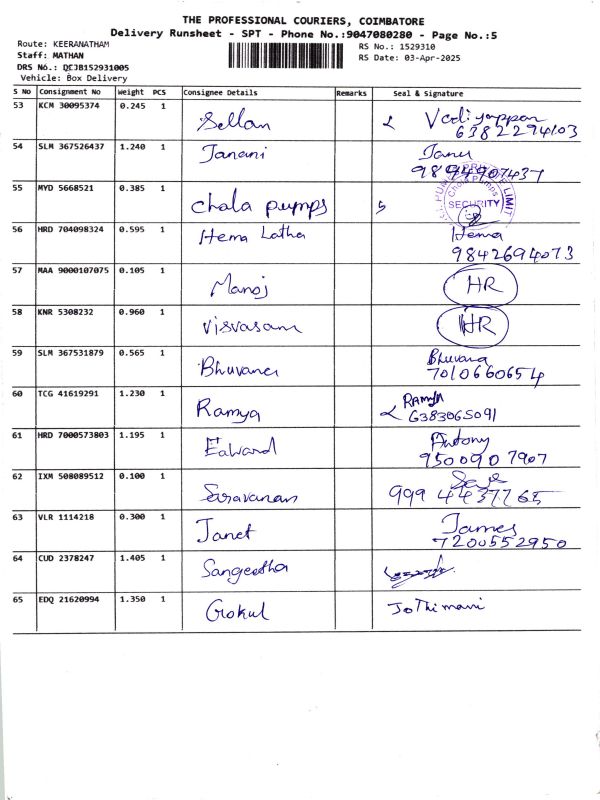 THE PROFESSIONAL COURIERS, COIMBATORE
Delivery Runsheet - SPT - Phone No.:9047080280 - Page No.:5
Route: KEERANATHAM
Staff: MATHAN
DRS No.: QCJB152931005
Vehicle: Box Delivery
RS No.: 1529310
RS Date: 03-Apr-2025
S No Consignment No Weight PCS Consignee Details Remarks Seal & Signature
53 KCM 30095374 0.245 1 Sellan Vediyappan
6382294103
54 SLM 367526437 1.240 1 Janani Janu
9894907437
55 MYD 5668521 0.385 1 Chola pumps Chola Pumps SECURITY
56 HRD 704098324 0.595 1 Hema Latha Hema
9842694073
57 MAA 9000107075 0.105 1 Manoj HR
58 KNR 5308232 0.960 1 Visvasam HR
59 SLM 367531879 0.565 1 Bhuvana Bhuvana
7010660654
60 TCG 41619291 1.230 1 Ramya RAMYA
6383065091
61 HRD 7000573803 1.195 1 Edward Antony
9500907907
62 IXM 508089512 0.100 1 Saravanan
9994437765
63 VLR 1114218 0.300 1 Janet James
7200552950
64 CUD 2378247 1.405 1 Sangeetha
65 EDQ 21620994 1.350 1 Gokul Jothimani